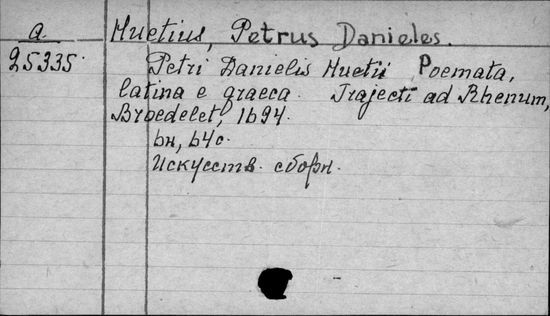 a.
Huetius, Petrus Danieles.
25335.
Petri Danielis Huetii Poemata,
latina e graeca. Trajecti ad Rhenum,
Broedelet, 1694.
6н, 64с.
Искусств. сборн.